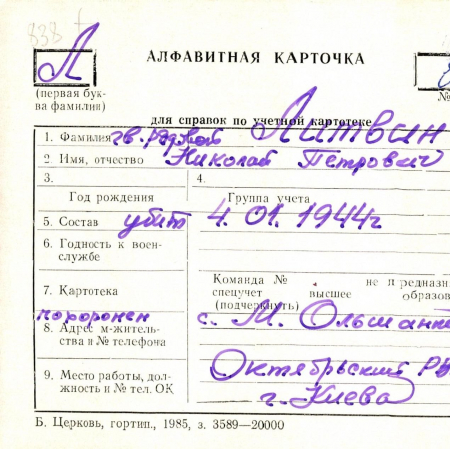 838
Л
АЛФАВИТНАЯ КАРТОЧКА
(первая бук-
ва фамилии)
№
для справок по учетной картотеке
1. Фамилия гв. рядовой Литвин
2. Имя, отчество Николай Петрович
3.
4.
Год рождения
Группа учета
5. Состав убит 4.01.1944г
6. Годность к воен-
службе
7. Картотека
Команда № не предназн
спецучет высшее образов
(подчеркнуть)
похоронен с. М. Ольшанк
8. Адрес м-житель-
ства и № телефона
Октябрьский
9. Место работы, дол-
жность и № тел. ОК
г. Киева
Б. Церковь, гортип., 1985, з. 3589—20000